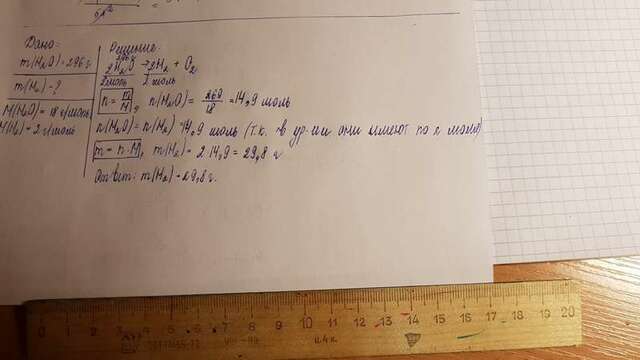 Дано:
m(H₂O) = 296 г
m(H₂) - ?
M(H₂O) = 18 г/моль
M(H₂) = 2 г/моль
Решение:
2H₂O = 2H₂ + O₂
2 моль 2 моль
n = m/M; n(H₂O) = /18 = 14,9 моль
n(H₂O) = n(H₂) = 14,9 моль (т.к. в ур-ии они имеют по 2 моль)
m = n · M; m(H₂) = 2 · 14,9 = 29,8 г
Ответ: m(H₂) = 29,8 г.
0 1 2 3 4 5 6 7 8 9 10 11 12 13 14 15 16 17 18 19 20